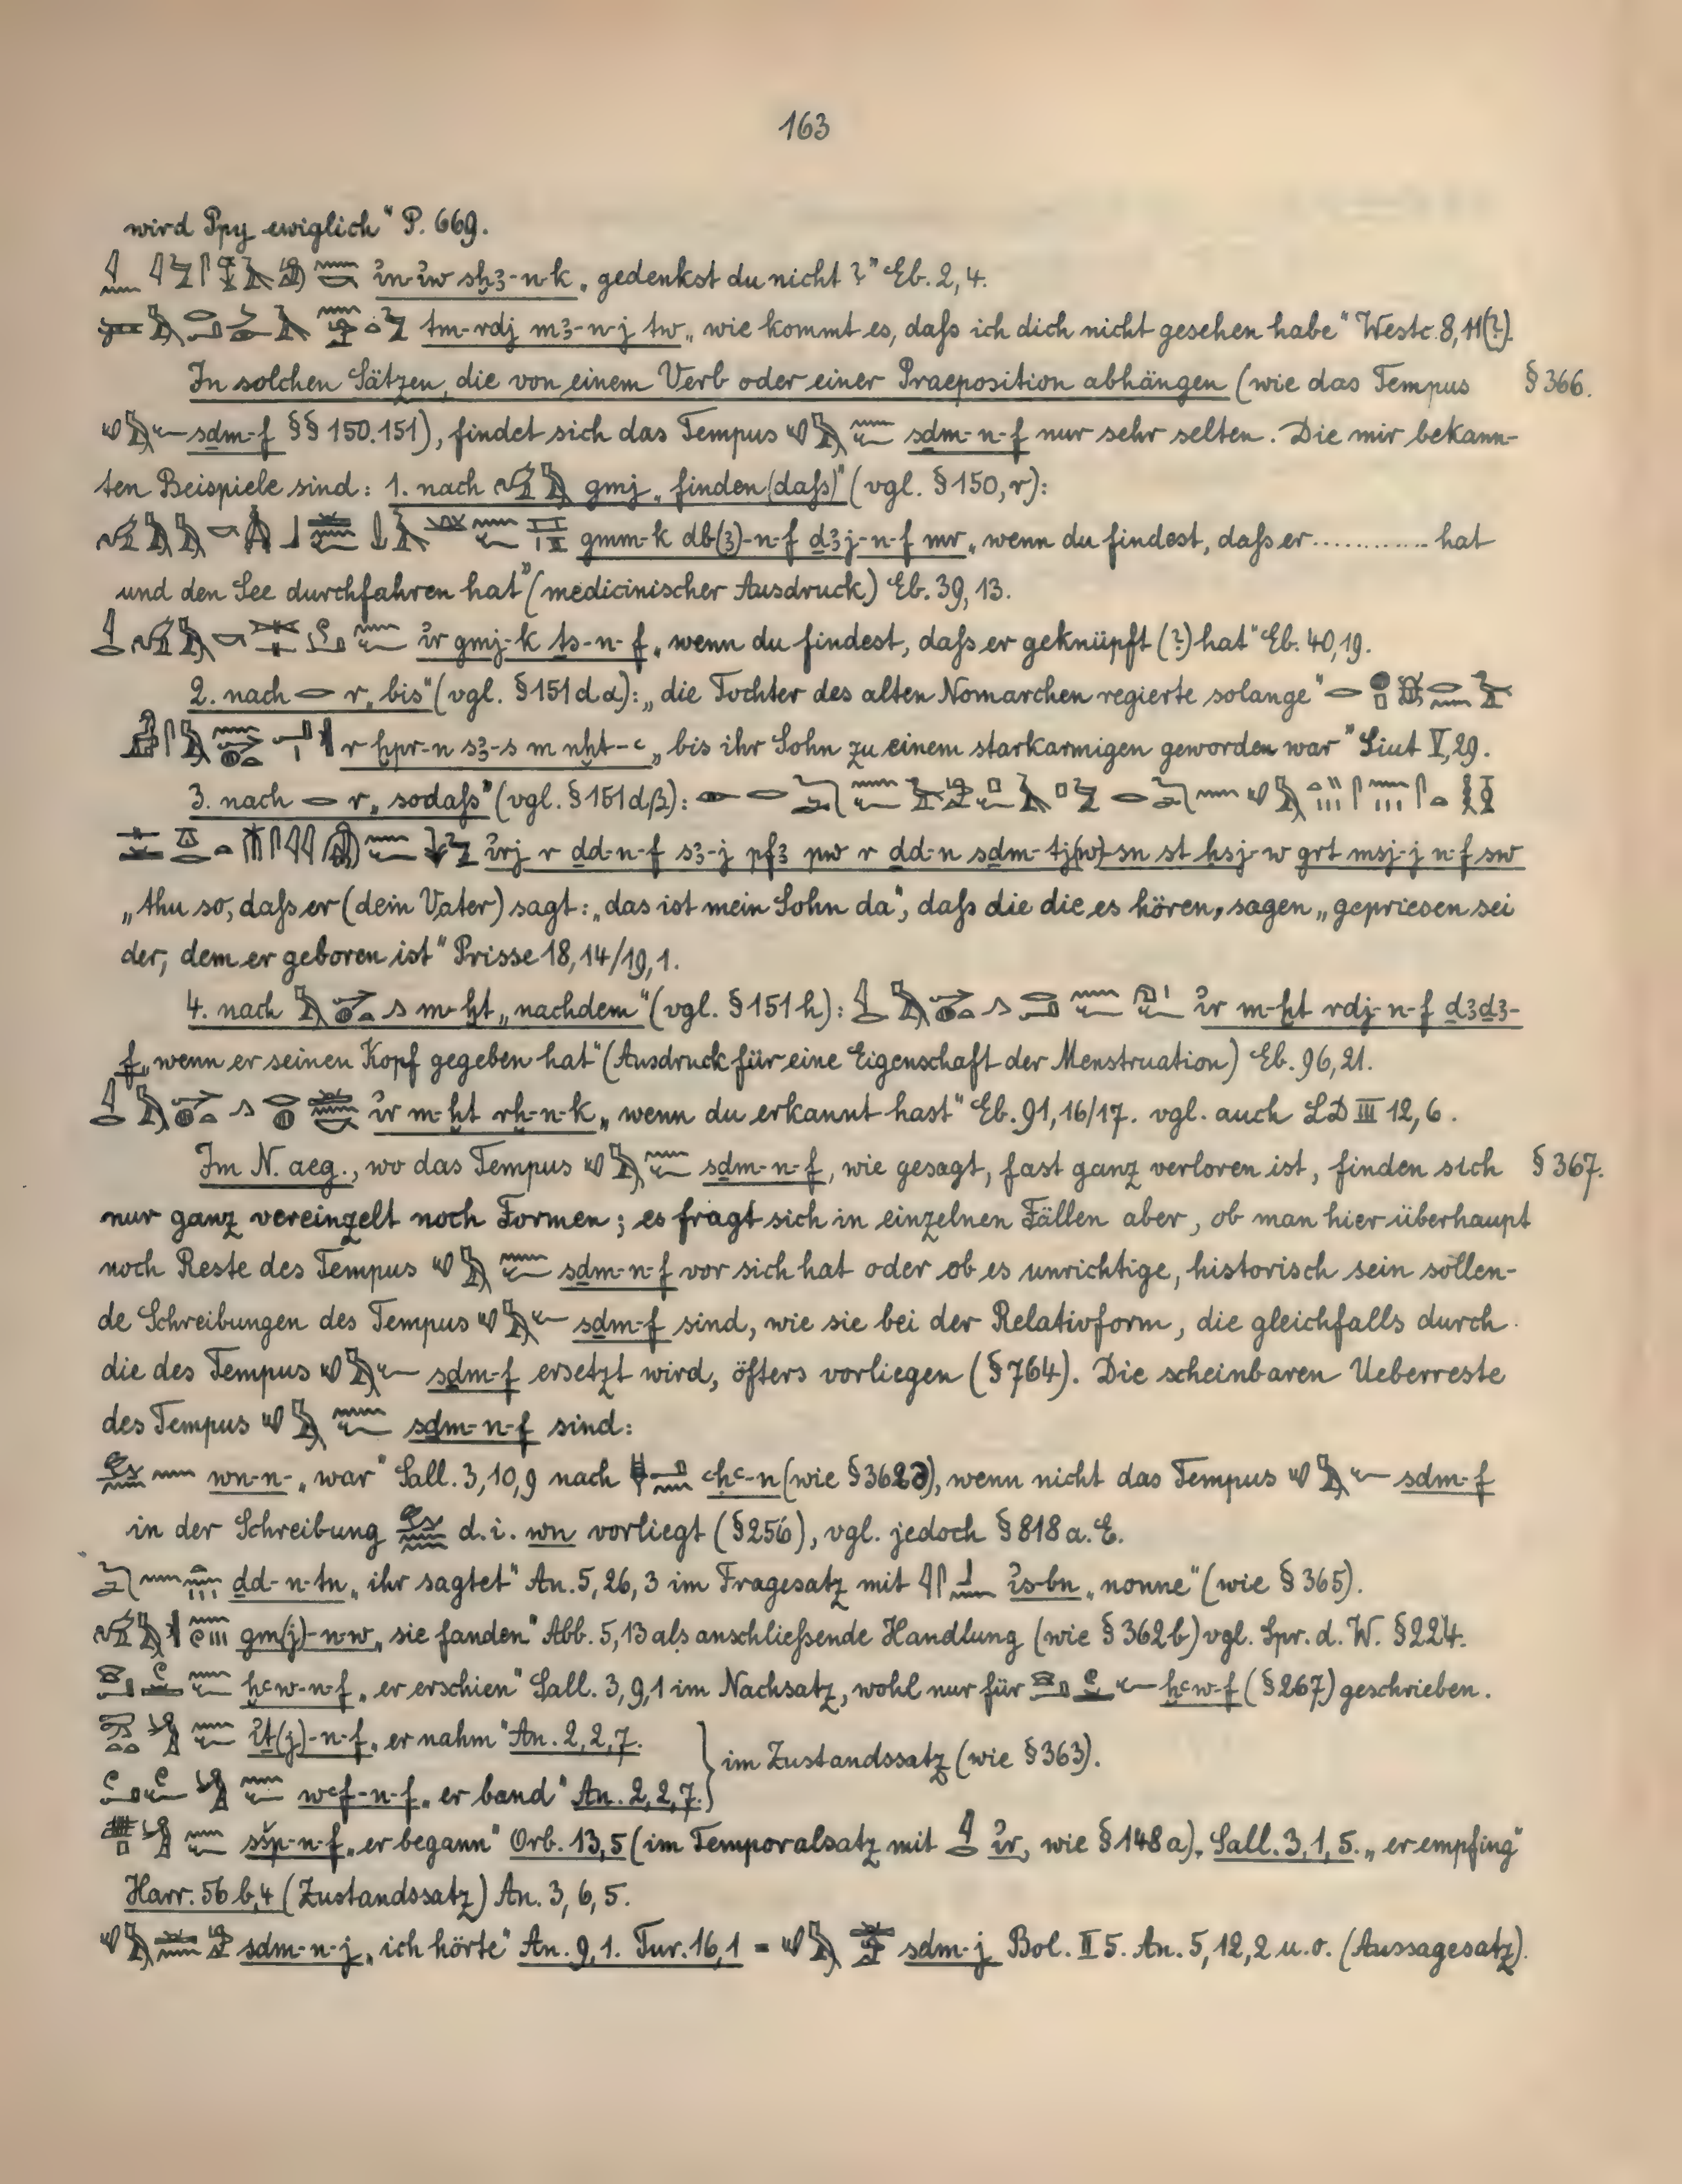 163
wird Ppy ewiglich" P. 669.
i̓n-i̓w sḫ3-n-k „gedenkst du nicht?" Eb. 2, 4.
tm-rdj m3-n-j tw „wie kommt es, daſs ich dich nicht gesehen habe" Westc. 8, 11(?).
In solchen Sätzen, die von einem Verb oder einer Praeposition abhängen (wie das Tempus § 366.
sḏm-f §§ 150.151), findet sich das Tempus sḏm-n-f nur sehr selten. Die mir bekann-
ten Beispiele sind: 1. nach gmj „finden (daſs)" (vgl. § 150, r):
gmm-k db(3)-n-f ḏ3j-n-f mr „wenn du findest, daſs er ............ hat
und den See durchfahren hat" (medicinischer Ausdruck) Eb. 39, 13.
i̓r gmj-k ṯs-n-f „wenn du findest, daſs er geknüpft (?) hat" Eb. 40, 19.
2. nach r „bis" (vgl. § 151 d α): „die Tochter des alten Nomarchen regierte solange"
r ḫpr-n s3-s m nḫt-ꜥ „bis ihr Sohn zu einem starkarmigen geworden war" Siut V, 29.
3. nach r „sodaſs" (vgl. § 151 d β):
i̓rj r ḏd-n-f s3-j pf3 pw r ḏd-n sḏm-tj(w)-sn st ḥsj-w grt msj-j n-f sw
„thu so, daſs er (dein Vater) sagt: „das ist mein Sohn da", daſs die die es hören, sagen „gepriesen sei
der, dem er geboren ist" Prisse 18, 14/19, 1.
4. nach m-ḫt „nachdem" (vgl. § 151 h): i̓r m-ḫt rdj-n-f ḏ3ḏ3-
f „wenn er seinen Kopf gegeben hat" (Ausdruck für eine Eigenschaft der Menstruation) Eb. 96, 21.
i̓r m-ḫt rḫ-n-k „wenn du erkannt hast" Eb. 91, 16/17. vgl. auch LD III 12, 6.
Im N. aeg., wo das Tempus sḏm-n-f, wie gesagt, fast ganz verloren ist, finden sich § 367.
nur ganz vereinzelt noch Formen; es fragt sich in einzelnen Fällen aber, ob man hier überhaupt
noch Reste des Tempus sḏm-n-f vor sich hat oder ob es unrichtige, historisch sein sollen-
de Schreibungen des Tempus sḏm-f sind, wie sie bei der Relativform, die gleichfalls durch
die des Tempus sḏm-f ersetzt wird, öfters vorliegen (§ 764). Die scheinbaren Ueberreste
des Tempus sḏm-n-f sind:
wn-n- „war" Sall. 3, 10, 9 nach ꜥḥꜥ-n (wie § 362 ), wenn nicht das Tempus sḏm-f
in der Schreibung d. i. wn vorliegt (§ 256), vgl. jedoch § 818 a. E.
ḏd-n-tn „ihr sagtet" An. 5, 26, 3 im Fragesatz mit i̓s-bn „nonne" (wie § 365).
gm(j)-n-w „sie fanden" Abb. 5, 13 als anschlieſsende Handlung (wie § 362 b) vgl. Spr. d. W. § 224.
ḫꜥw-n-f „er erschien" Sall. 3, 9, 1 im Nachsatz, wohl nur für ḫꜥw-f (§ 267) geschrieben.
i̓ṯ(j)-n-f „er nahm" An. 2, 2, 7.
im Zustandssatz (wie § 363).
wꜥf-n-f „er band" An. 2, 2, 7.
sšp-n-f „er begann" Orb. 13, 5 (im Temporalsatz mit i̓r, wie § 148 a), Sall. 3, 1, 5. „er empfing"
Harr. 5 b, 4 (Zustandssatz) An. 3, 6, 5.
sḏm-n-j „ich hörte" An. 9, 1. Tur. 16, 1 = sḏm-j Bol. II 5. An. 5, 12, 2 u. o. (Aussagesatz).